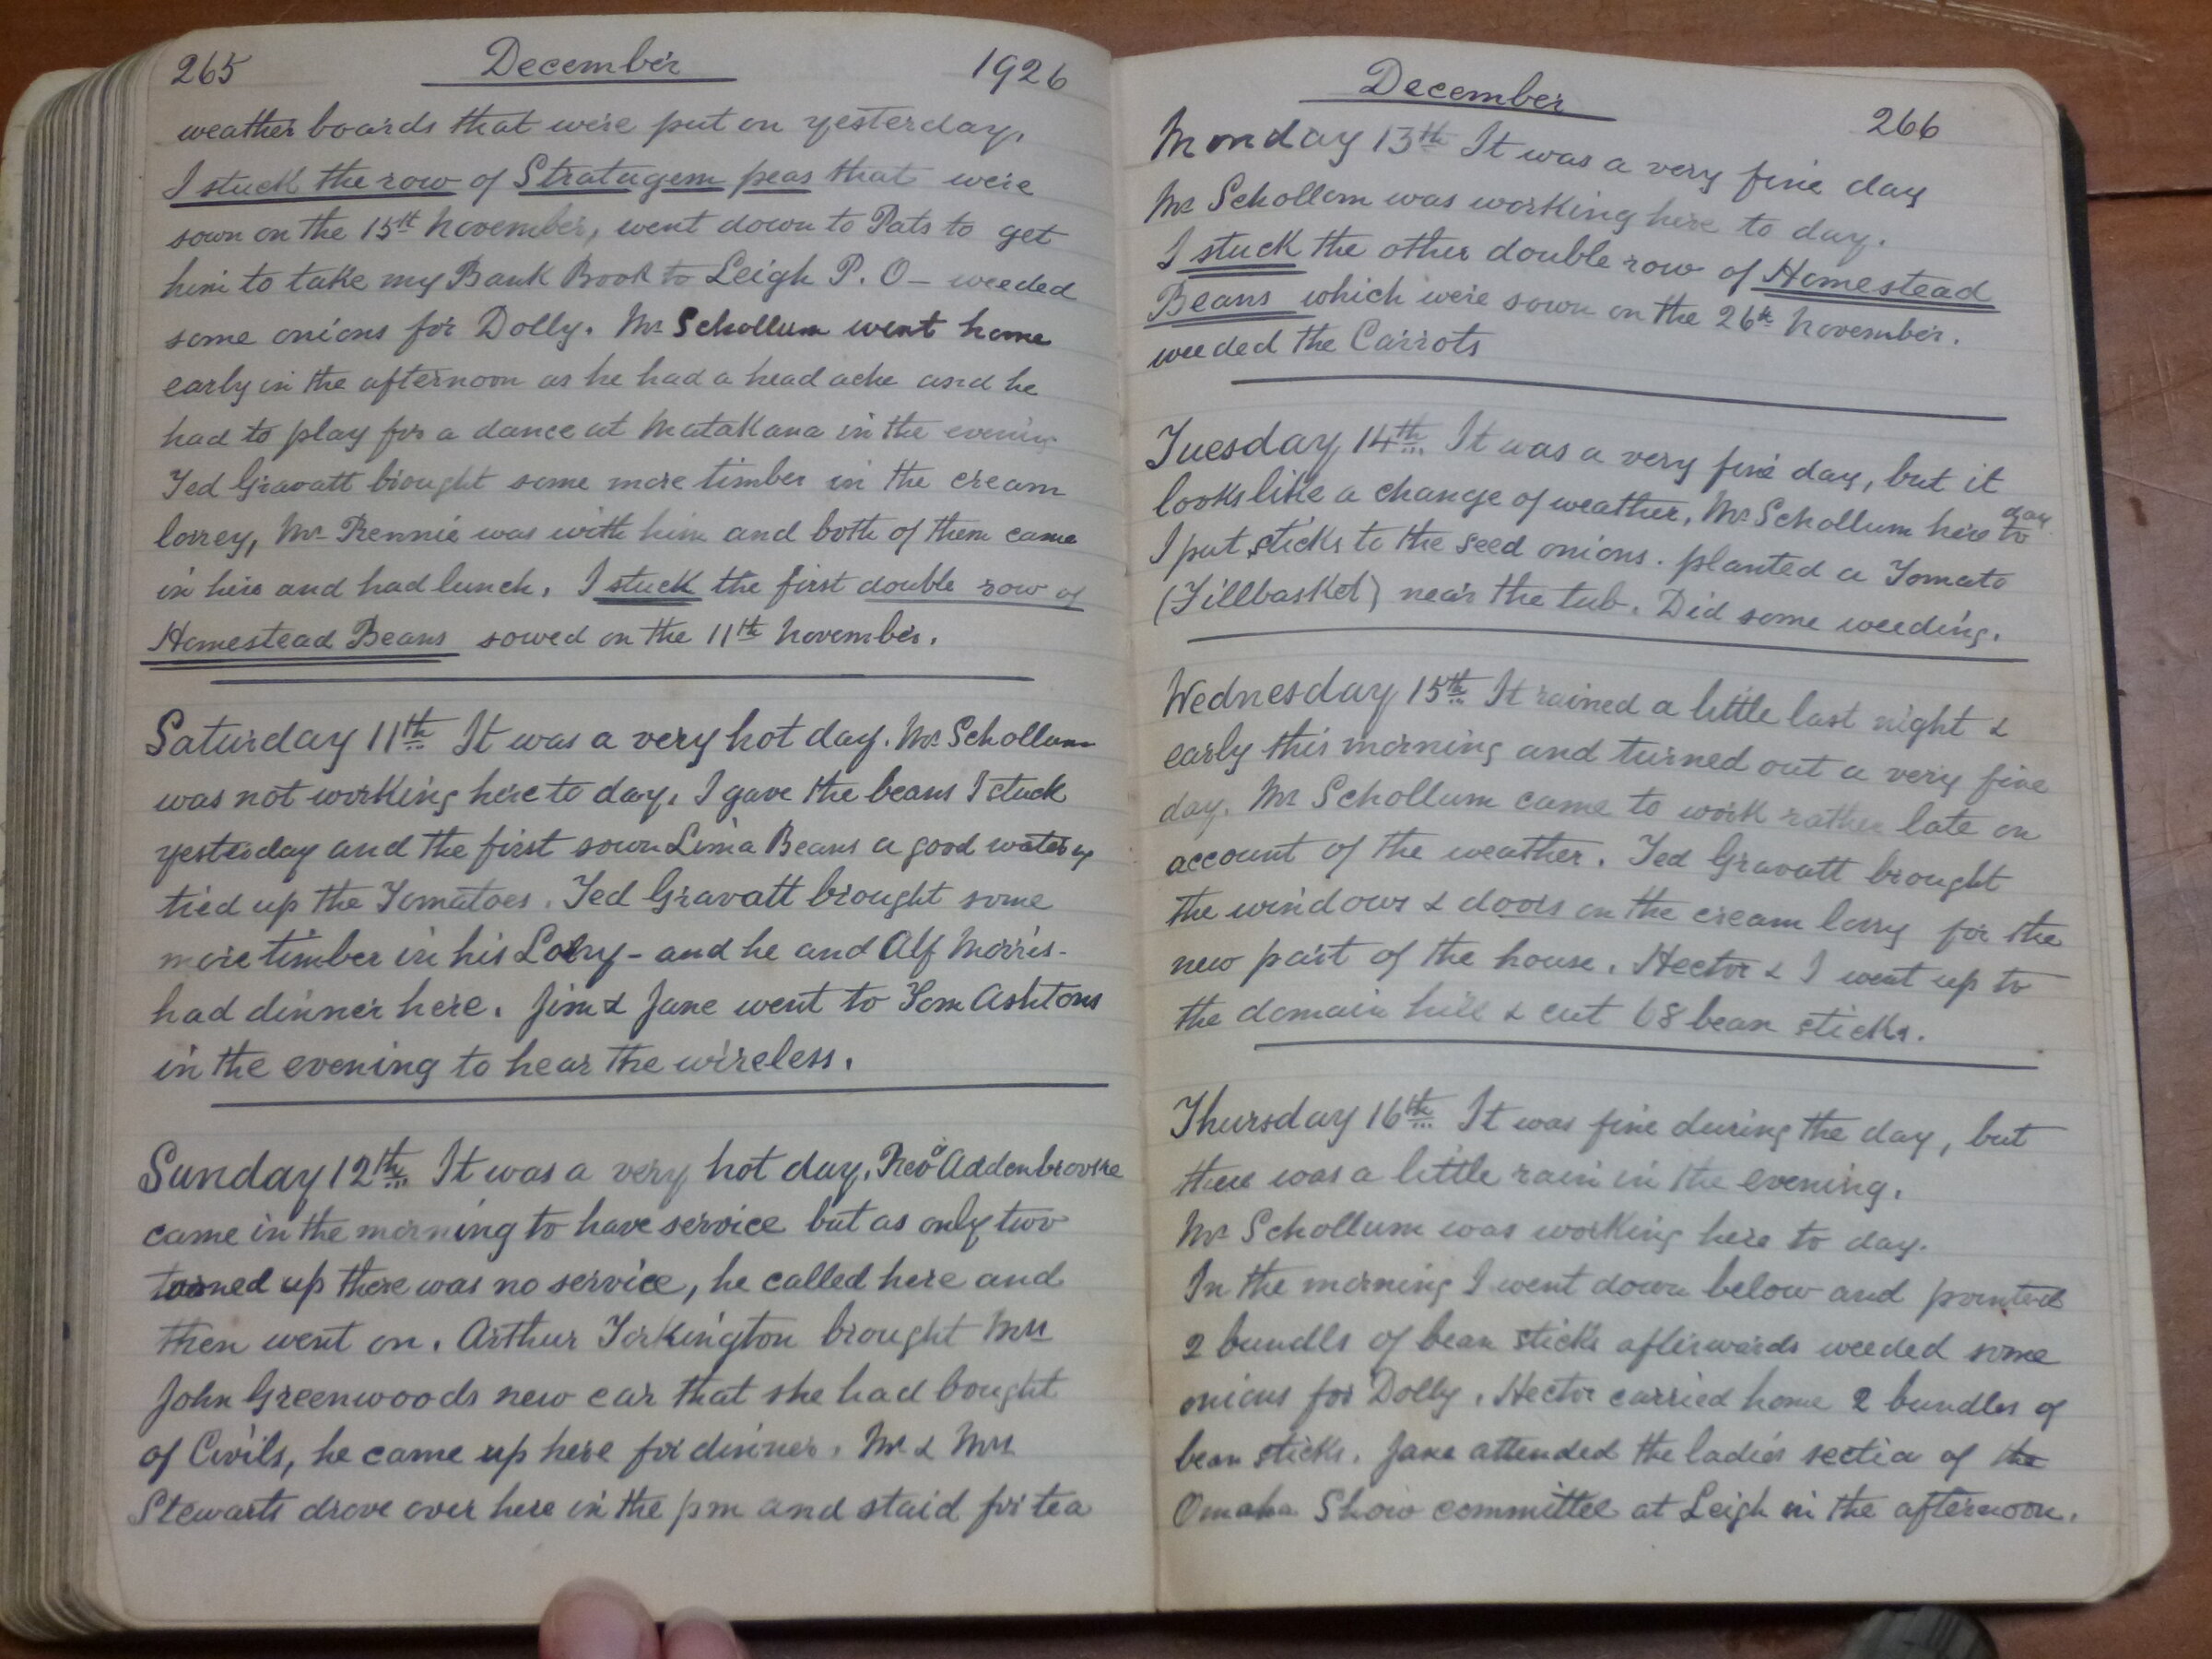 265 December 1926
weather boards that were put on yesterday,
I stuck the row of Stratagem peas that were
sown on the 15th November, went down to Pats to get
him to take my Bank Book to Leigh P. O - weeded
some onions for Dolly. Mr Schollum went home
early in the afternoon as he had a head ache and he
had to play for a dance at Matakana in the evening
Ted Gravatt brought some more timber in the cream
lorrey, Mr Rennie was with him and both of them came
in here and had lunch. I stuck the first double row of
Homestead Beans sowed on the 11th November.
Saturday 11th It was a very hot day. Mr Schollum
was not working here to day. I gave the beans I stuck
yesterday and the first sown Lima Beans a good watering
tied up the Tomatoes. Ted Gravatt brought some
more timber in his Lorry - and he and Alf Morris-
had dinner here. Jim & Jane went to Tom Ashtons
in the evening to hear the wireless.
Sunday 12th It was a very hot day. Revd Addenbrooke
came in the morning to have service but as only two
turned up there was no service, he called here and
then went on. Arthur Torkington brought Mrs
John Greenwoods new car that she had bought
of Civils, he came up here for dinner. Mr & Mrs
Stewarts drove over here in the pm and staid for tea
December 266
Monday 13th It was a very fine day
Mr Schollum was working here to day.
I stuck the other double row of Homestead
Beans which were sown on the 26th November.
weeded the Carrots
Tuesday 14th It was a very fine day, but it
looks like a change of weather, Mr Schollum here to day
I put sticks to the seed onions. planted a Tomato
(Fillbasket) near the tub. Did some weeding.
Wednesday 15th It rained a little last night &
early this morning and turned out a very fine
day. Mr Schollum came to work rather late on
account of the weather. Ted Gravatt brought
the windows & doors on the cream lorry for the
new part of the house. Hector & I went up to
the domain hill & cut 68 bean sticks.
Thursday 16th It was fine during the day, but
there was a little rain in the evening.
Mr Schollum was working here to day.
In the morning I went down below and pointed
2 bundls of bean sticks afterwards weeded some
onions for Dolly. Hector carried home 2 bundles of
bean sticks. Jane attended the ladies sectia of the
Omaha Show committee at Leigh in the afternoon.